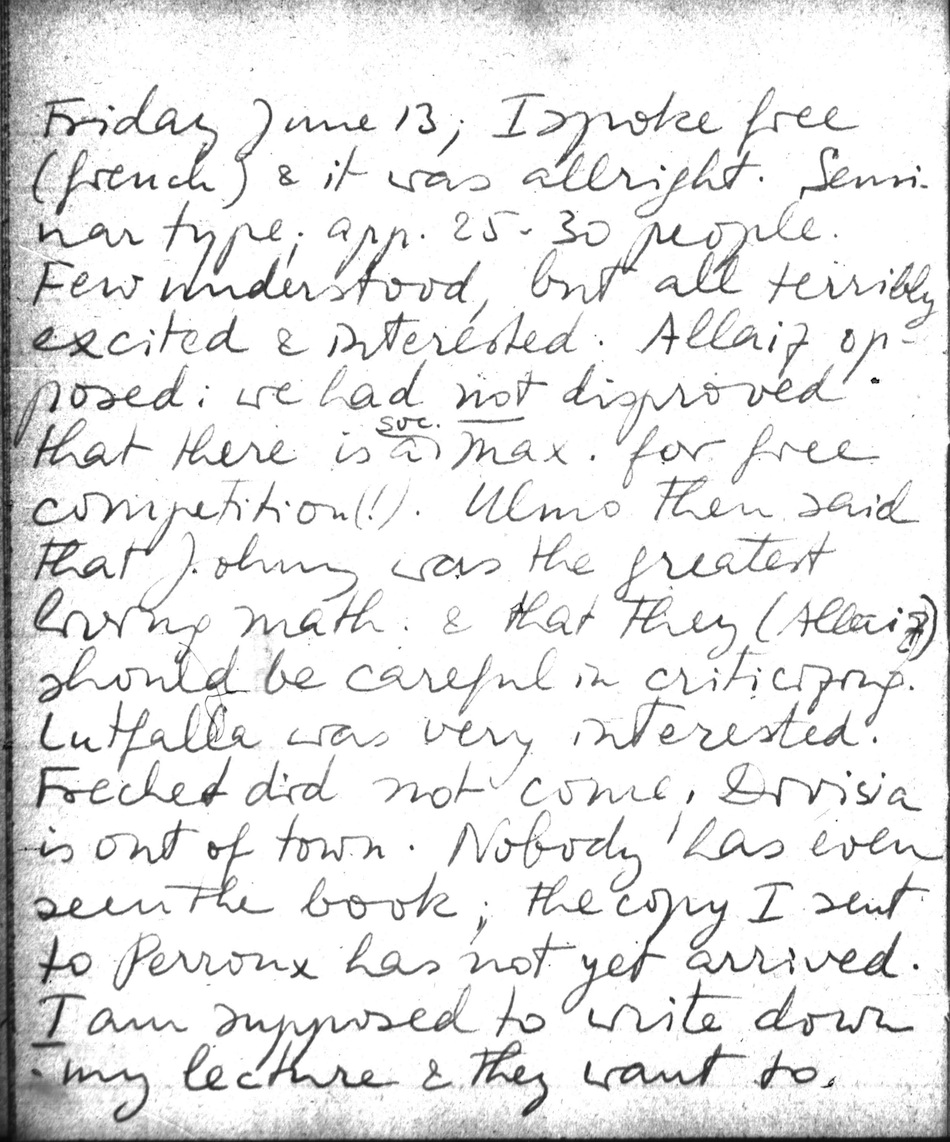 Friday June 13; I spoke free
(french) & it was allright. Semi-
nar type; app. 25-30 people.
Few understood, but all terribly
excited & interested. Allaiz op-
posed: we had not disproved
that there is a soc. max. for free
competition(!). Ulmo then said
that Johnny was the greatest
living math. & that they (Allaiz)
should be careful in criticizing.
Lutfalla was very interested.
Frechet did not come, Divisia
is out of town. Nobody has even
seen the book; the copy I sent
to Perroux has not yet arrived.
I am supposed to write down
my lecture & they want to